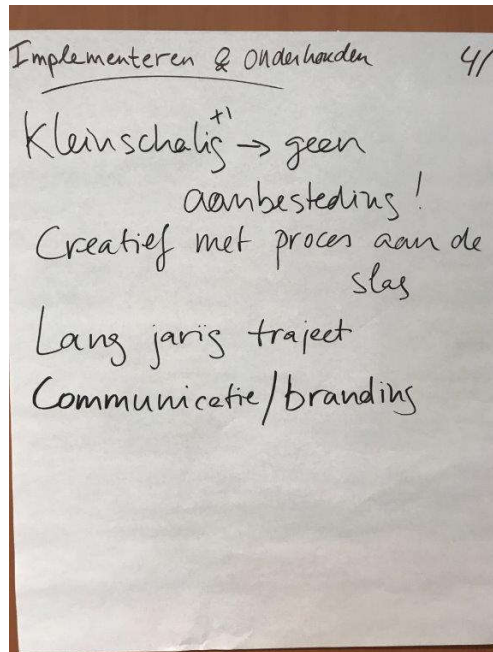 Implementeren & onderhouden 4/
Kleinschalig +1 → geen
aanbesteding!
Creatief met proces aan de
slag
Lang jarig traject
Communicatie/branding